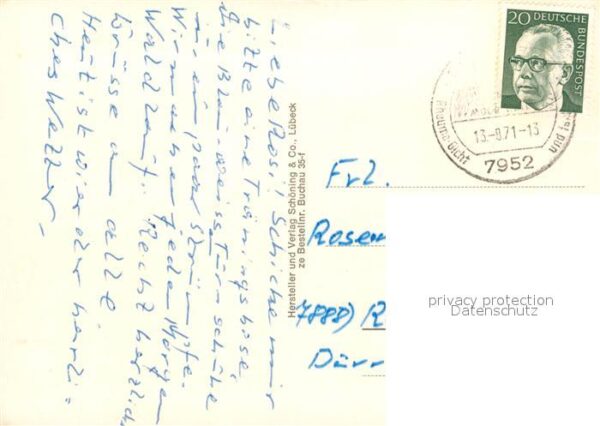 Liebe Rosi! Schicke mir
bitte eine Trainingshose,
die Blau-weiss Turnschuhe
und ein paar Strümpfe.
Wir machen jeden Morgen
Waldlauf. Recht herzliche
Grüsse an alle
Heut ist wieder herrli=
ches Wetter,
Hersteller und Verlag Schöning & Co., Lübeck
ze Bestellnr. Buchau 35-f
20 DEUTSCHE
BUNDESPOST
13-8.71-13
7952
Rheuma Gicht
und
Frl.
Rosem
7888) R
Dürr
privacy protection
Datenschutz